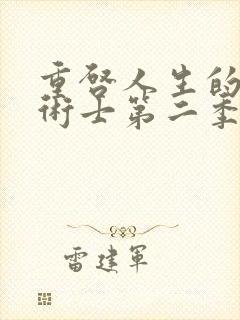 重啓人生的
術士第二季
雷建軍